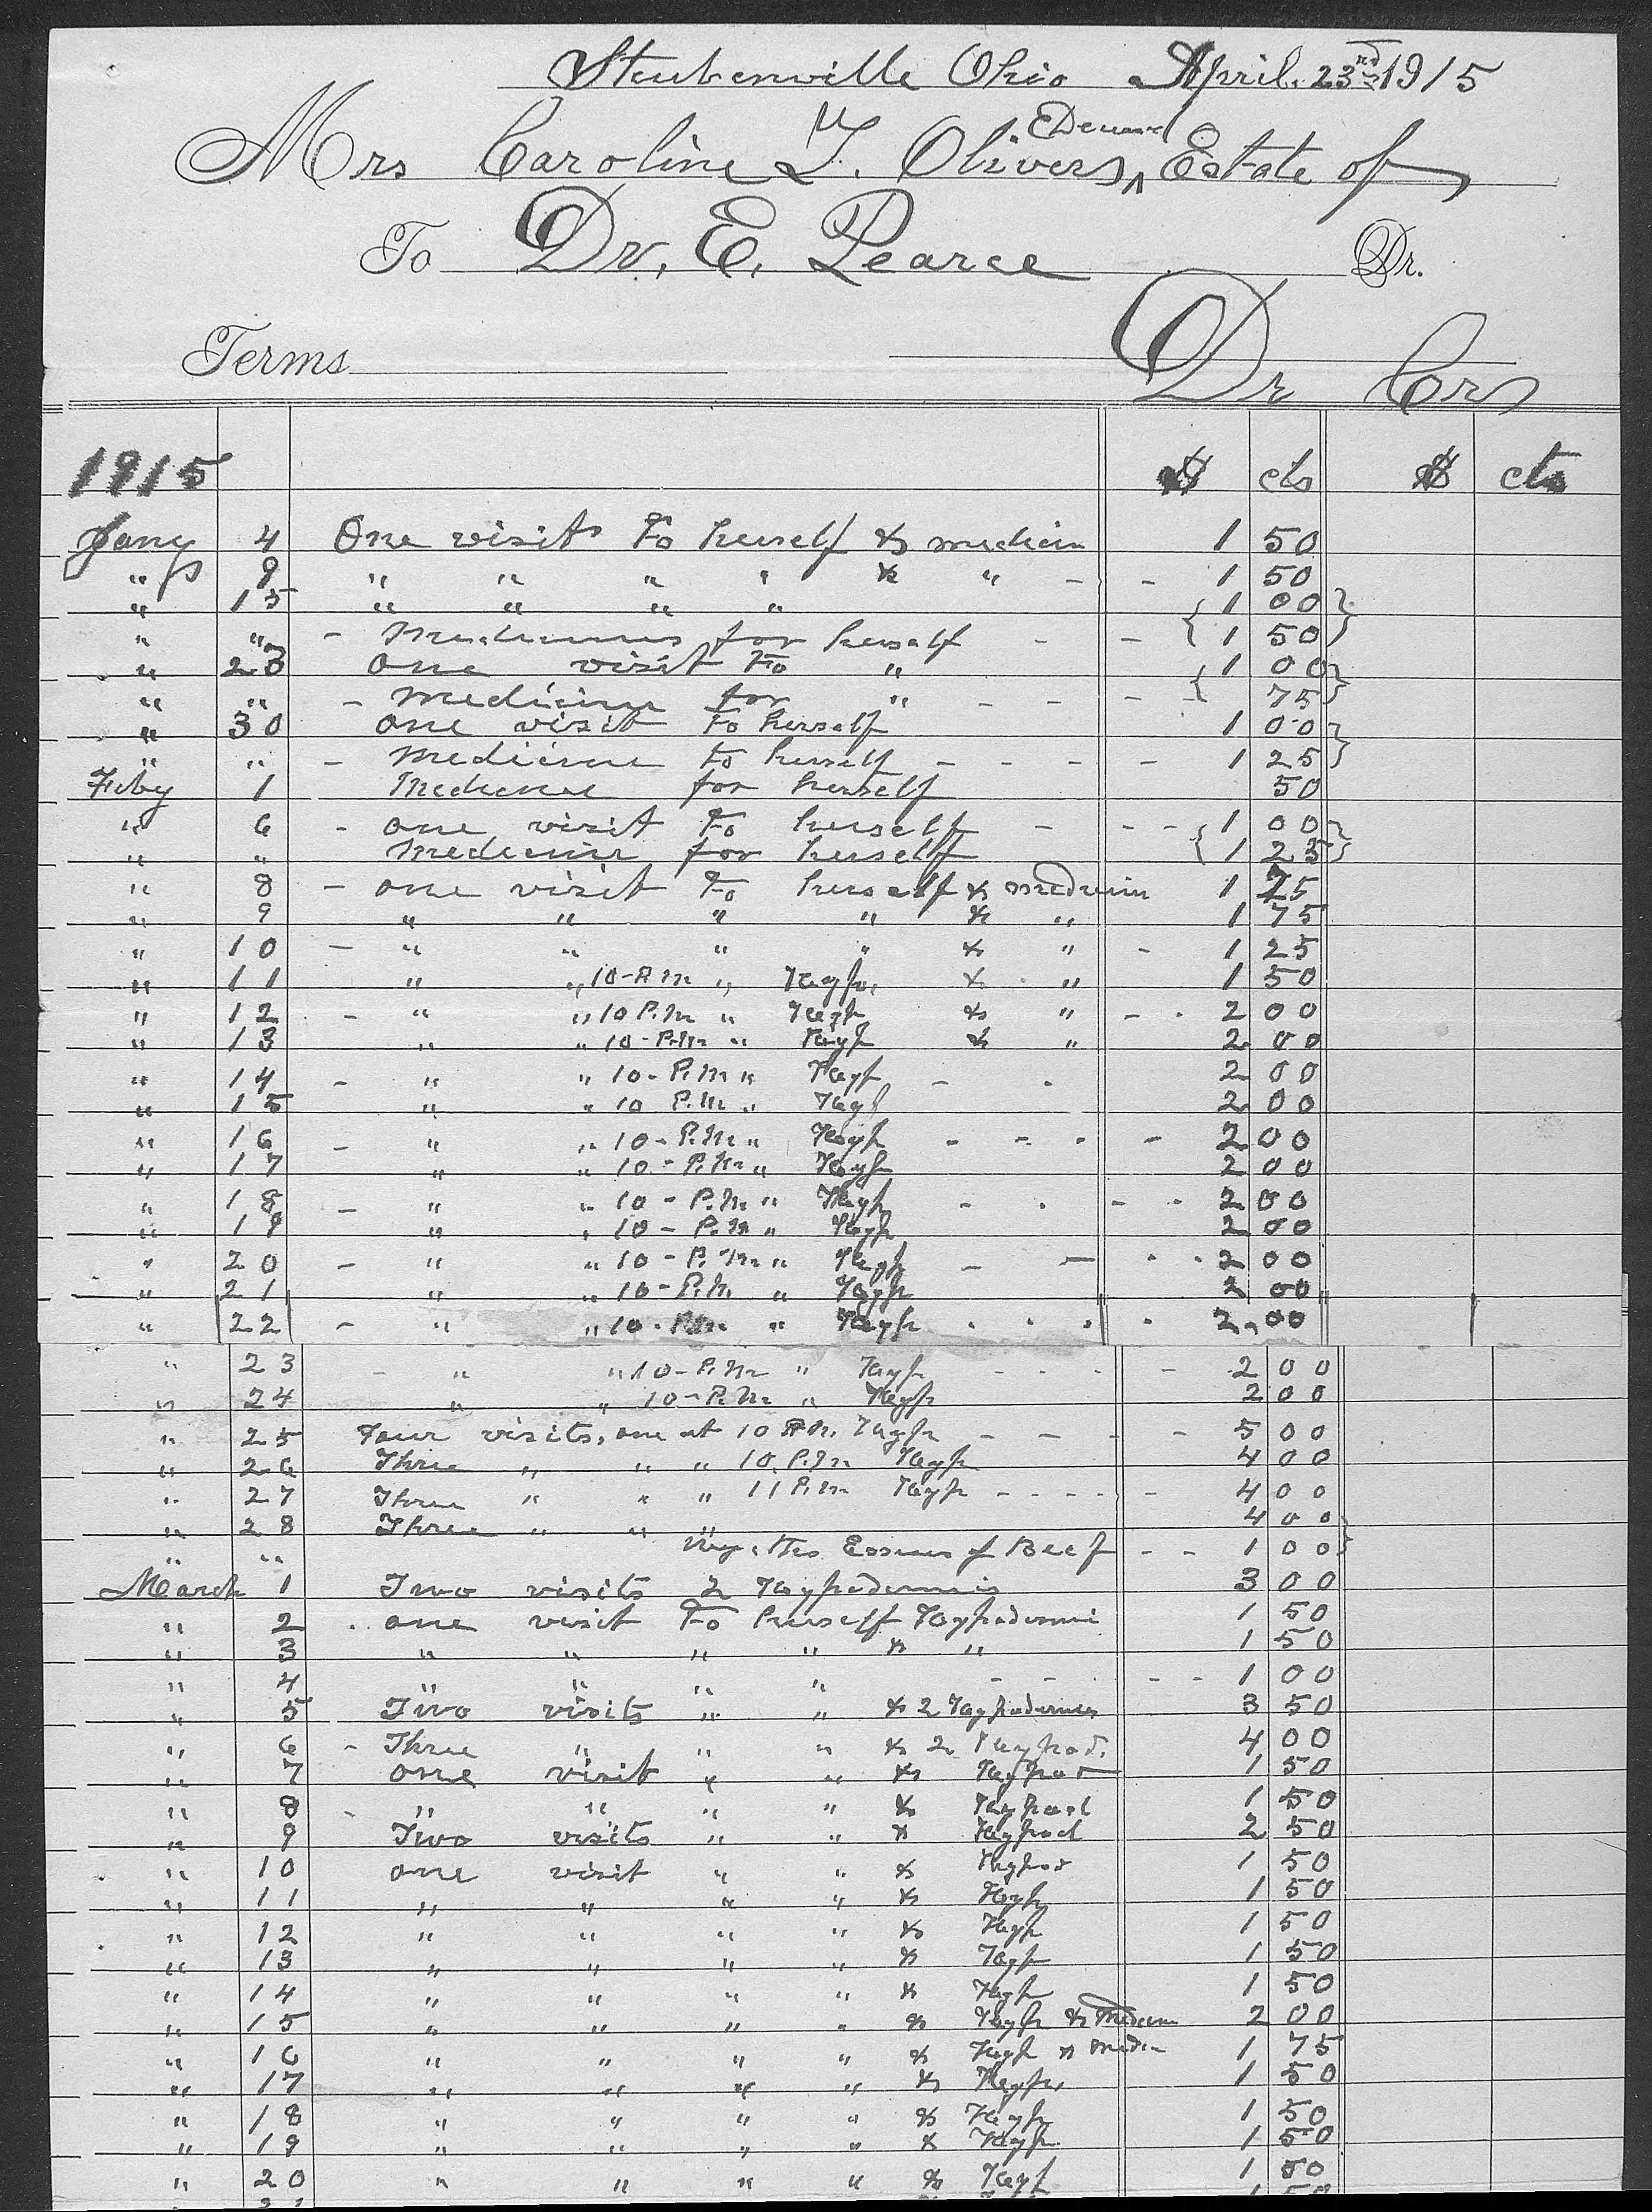 Steubenville Ohio April. 23rd 1915
Mrs Caroline T. Olivers, Estate of
To Dr. E. Pearce Dr.
Terms Dr Crs
1915 $ cts $ cts
Jany 4 One visit to herself & medicin 1 50
" 9 " " " " & " - - 1 50
" 15 " " " " 1 00
" " - Medicines for herself - - 1 50
" 23 one visit to " 1 00
" " - Medicine for " - - - 75
" 30 one visit to herself 1 00
" " - Medicine to herself - - - - 1 25
Feby 1 Medicines for herself 50
" 6 - one visit to herself - - - 1 00
" " Medicine for herself 1 25
" 8 - one visit to herself & medicin 1 25
" 9 " " " " & " 1 75
" 10 - " " " " & " - 1 25
" 11 " " 10-A.M " Hyp. & " 1 50
" 12 - " " 10 P.M " Hyp & " - - 2 00
" 13 " " 10-P.M " Hyp & " 2 00
" 14 - " " 10-P.M " Hyp - - 2 00
" 15 " " 10 P.M " Hyp 2 00
" 16 - " " 10-P.M " Hyp - - - - 2 00
" 17 " " 10-P.M " Hyp 2 00
" 18 - " " 10-P.M " Hyp - - - - 2 00
" 19 " " 10-P.M " Hyp 2 00
" 20 - " " 10-P.M " Hyp - - - - 2 00
" 21 " " 10-P.M " Hyp 2 00
" 22 - " " 10-P.M " Hyp - - - - 2.00
" 23 - " " 10-P.M " Hyp - - - - 2 00
" 24 " " 10-P.M " Hyp 2 00
" 25 Four visits, one at 10 P.M. Hyp - - - - 5 00
" 26 Three " " " 10.P.M Hyp 4 00
" 27 Three " " " 11 P.M Hyp - - - - - 4 00
" 28 Three " " " 4 00
" " Essence of Beef - - 1 00
March 1 Two visits 2 Hypodermis 3 00
" 2 one visit to herself Hypodermi 1 50
" 3 " " " " & " 1 50
" 4 " " " " - - - - 1 00
" 5 Two visits " " & 2 Hypodermics 3 50
" 6 - Three " " " & 2 Hypod. 4 00
" 7 one visit " " & Hypod 1 50
" 8 - " " " " & Hypod 1 50
" 9 Two visits " " & Hypod 2 50
" 10 one visit " " & Hypod 1 50
" 11 " " " " & Hyp 1 50
" 12 " " " " & Hyp 1 50
" 13 " " " " & Hyp 1 50
" 14 " " " " & Hyp 1 50
" 15 " " " " & Hyp & Medicin 2 00
" 16 " " " " & Hyp & Medin 1 75
" 17 " " " " & Hyp. 1 50
" 18 " " " " & Hyp 1 50
" 19 " " " " & Hyp 1 50
" 20 " " " " & Hyp 1 50